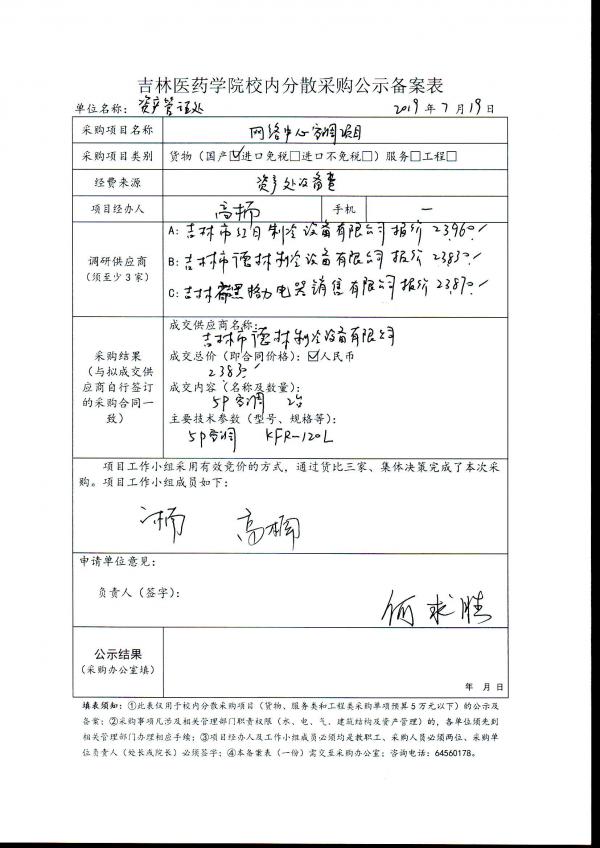 吉林医药学院校内分散采购公示备案表
单位名称：资产管理处 2019年7月19日
采购项目名称 网络中心空调项目
采购项目类别 货物（国产☑进口免税□进口不免税□）服务□工程□
经费来源 资产处设备费
项目经办人 高楠 手机 —
调研供应商
（须至少3家）
A：吉林市红日制冷设备有限公司报价23960./
B：吉林市德林制冷设备有限公司报价23830./
C：吉林 格力电器销售有限公司报价23870./
采购结果
（与拟成交供
应商自行签订
的采购合同一
致）
成交供应商名称：
吉林市德林制冷设备有限公司
成交总价（即合同价格）：☑人民币
23830./
成交内容（名称及数量）：
5P空调 2台
主要技术参数（型号、规格等）：
5P空调 KFR-120L
项目工作小组采用有效竞价的方式，通过货比三家、集体决策完成了本次采
购。项目工作小组成员如下：
高楠
申请单位意见：
负责人（签字）：
何求胜
公示结果
（采购办公室填）
年 月 日
填表须知：①此表仅用于校内分散采购项目（货物、服务类和工程类采购单项预算5万元以下）的公示及
备案；②采购事项凡涉及相关管理部门职责权限（水、电、气、建筑结构及资产管理）的，各单位须先到
相关管理部门办理相应手续；③项目经办人及工作小组成员必须均是教职工、采购人员必须两位、采购单
位负责人（处长或院长）必须签字；④本备案表（一份）需交至采购办公室；咨询电话：64560178。